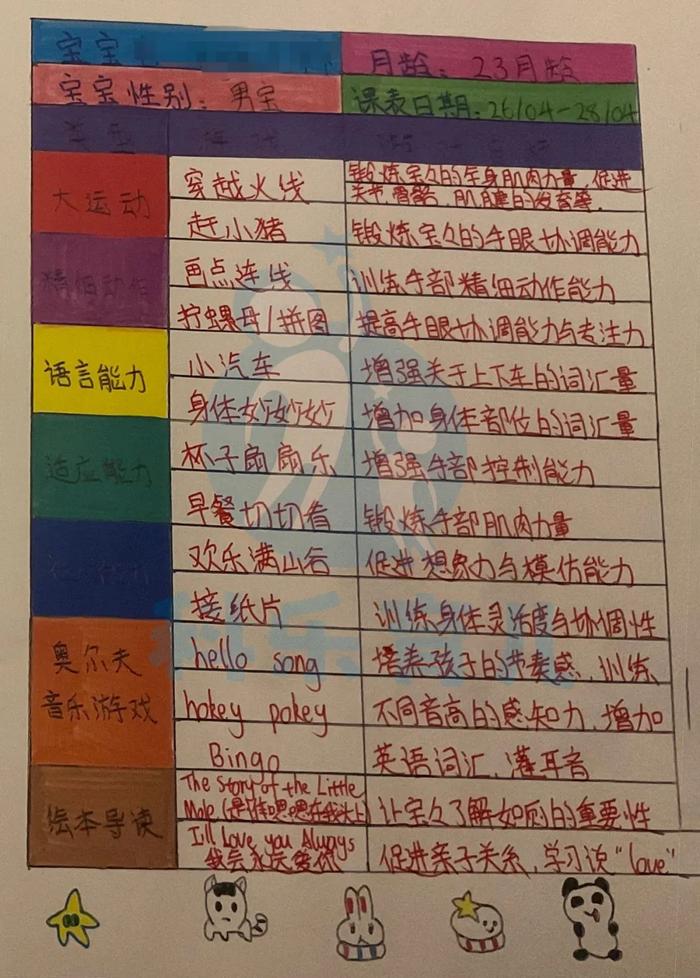 宝宝
月龄：23月龄
宝宝性别：男宝
课表日期：26/04-28/04
类型 游戏
大运动
穿越火线
锻炼宝々的全身肌肉力量，促进
关节、骨骼、肌腱的发育等。
赶小猪
锻炼宝々的手眼协调能力
精细动作
画点连线
训练手部精细动作能力
拧螺母/拼图
提高手眼协调能力与专注力
语言能力
小汽车
增强关于上下车的词汇量
身体妙妙妙
增加身体部位的词汇量
适应能力
杯子扇扇乐
增强手部控制能力
早餐切切看
锻炼手部肌肉力量
欢乐满山谷
促进想象力与模仿能力
接纸片
训练身体灵活度与协调性
奥尔夫
音乐游戏
hello song
培养孩子的节奏感，训练
hokey pokey
不同音高的感知力，增加
Bingo
英语词汇，灌耳音
绘本导读
The Story of the Little
Mole (是谁嗯嗯在我头上)
让宝々了解如厕的重要性
I'll Love you Always
我会永远爱你
促进亲子关系，学习说"love"